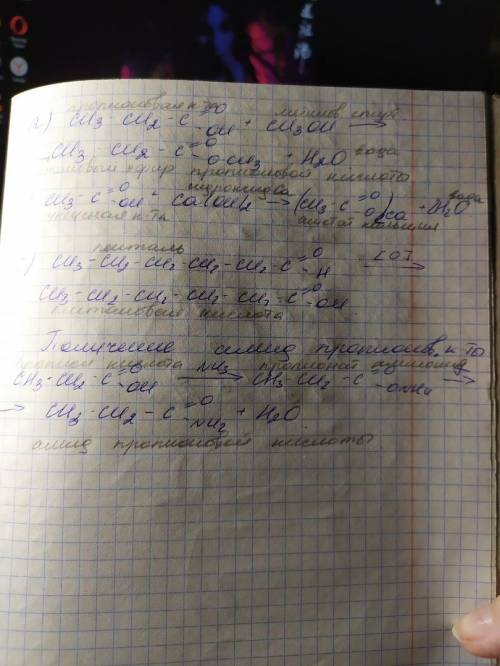 пропионовая к-та метилов спирт
а) CH3 - CH2 - C =O - OH + CH3OH →
CH3 - CH2 - C =O - O-CH3 + H2O вода
метиловый эфир пропионовой кислоты
гидроксид
CH3 - C =O - OH + Ca(OH)2 → (CH3 - C =O - O)2Ca + 2H2O вода
уксусная к-та ацетат кальция
CH3 - CH2 - CH2 - CH2 - CH2 - C =O - H [O] →
CH3 - CH2 - CH2 - CH2 - CH2 - C =O - OH
кислота
Получение амид пропионов. к-ты
кислота NH3
CH3 - CH2 - C =O - OH → CH3 - CH2 - C =O - ONH4 →
→ CH3 - CH2 - C =O - NH2 + H2O
амид пропионовой кислоты